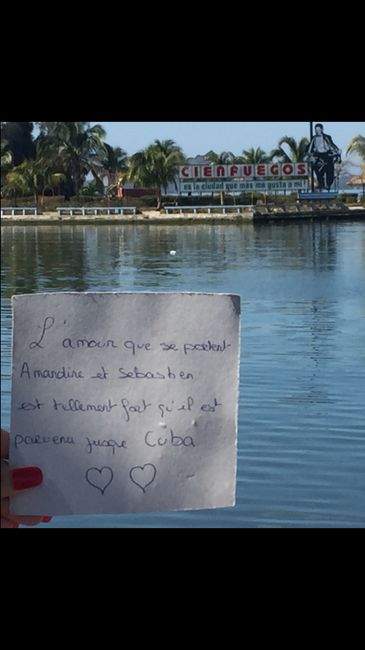 CIENFUEGOS
es la ciudad que más me gusta a mí
L'amour que se portent
Amandine et Sebastien
est tellement fort qu'il est
parvenu jusque Cuba